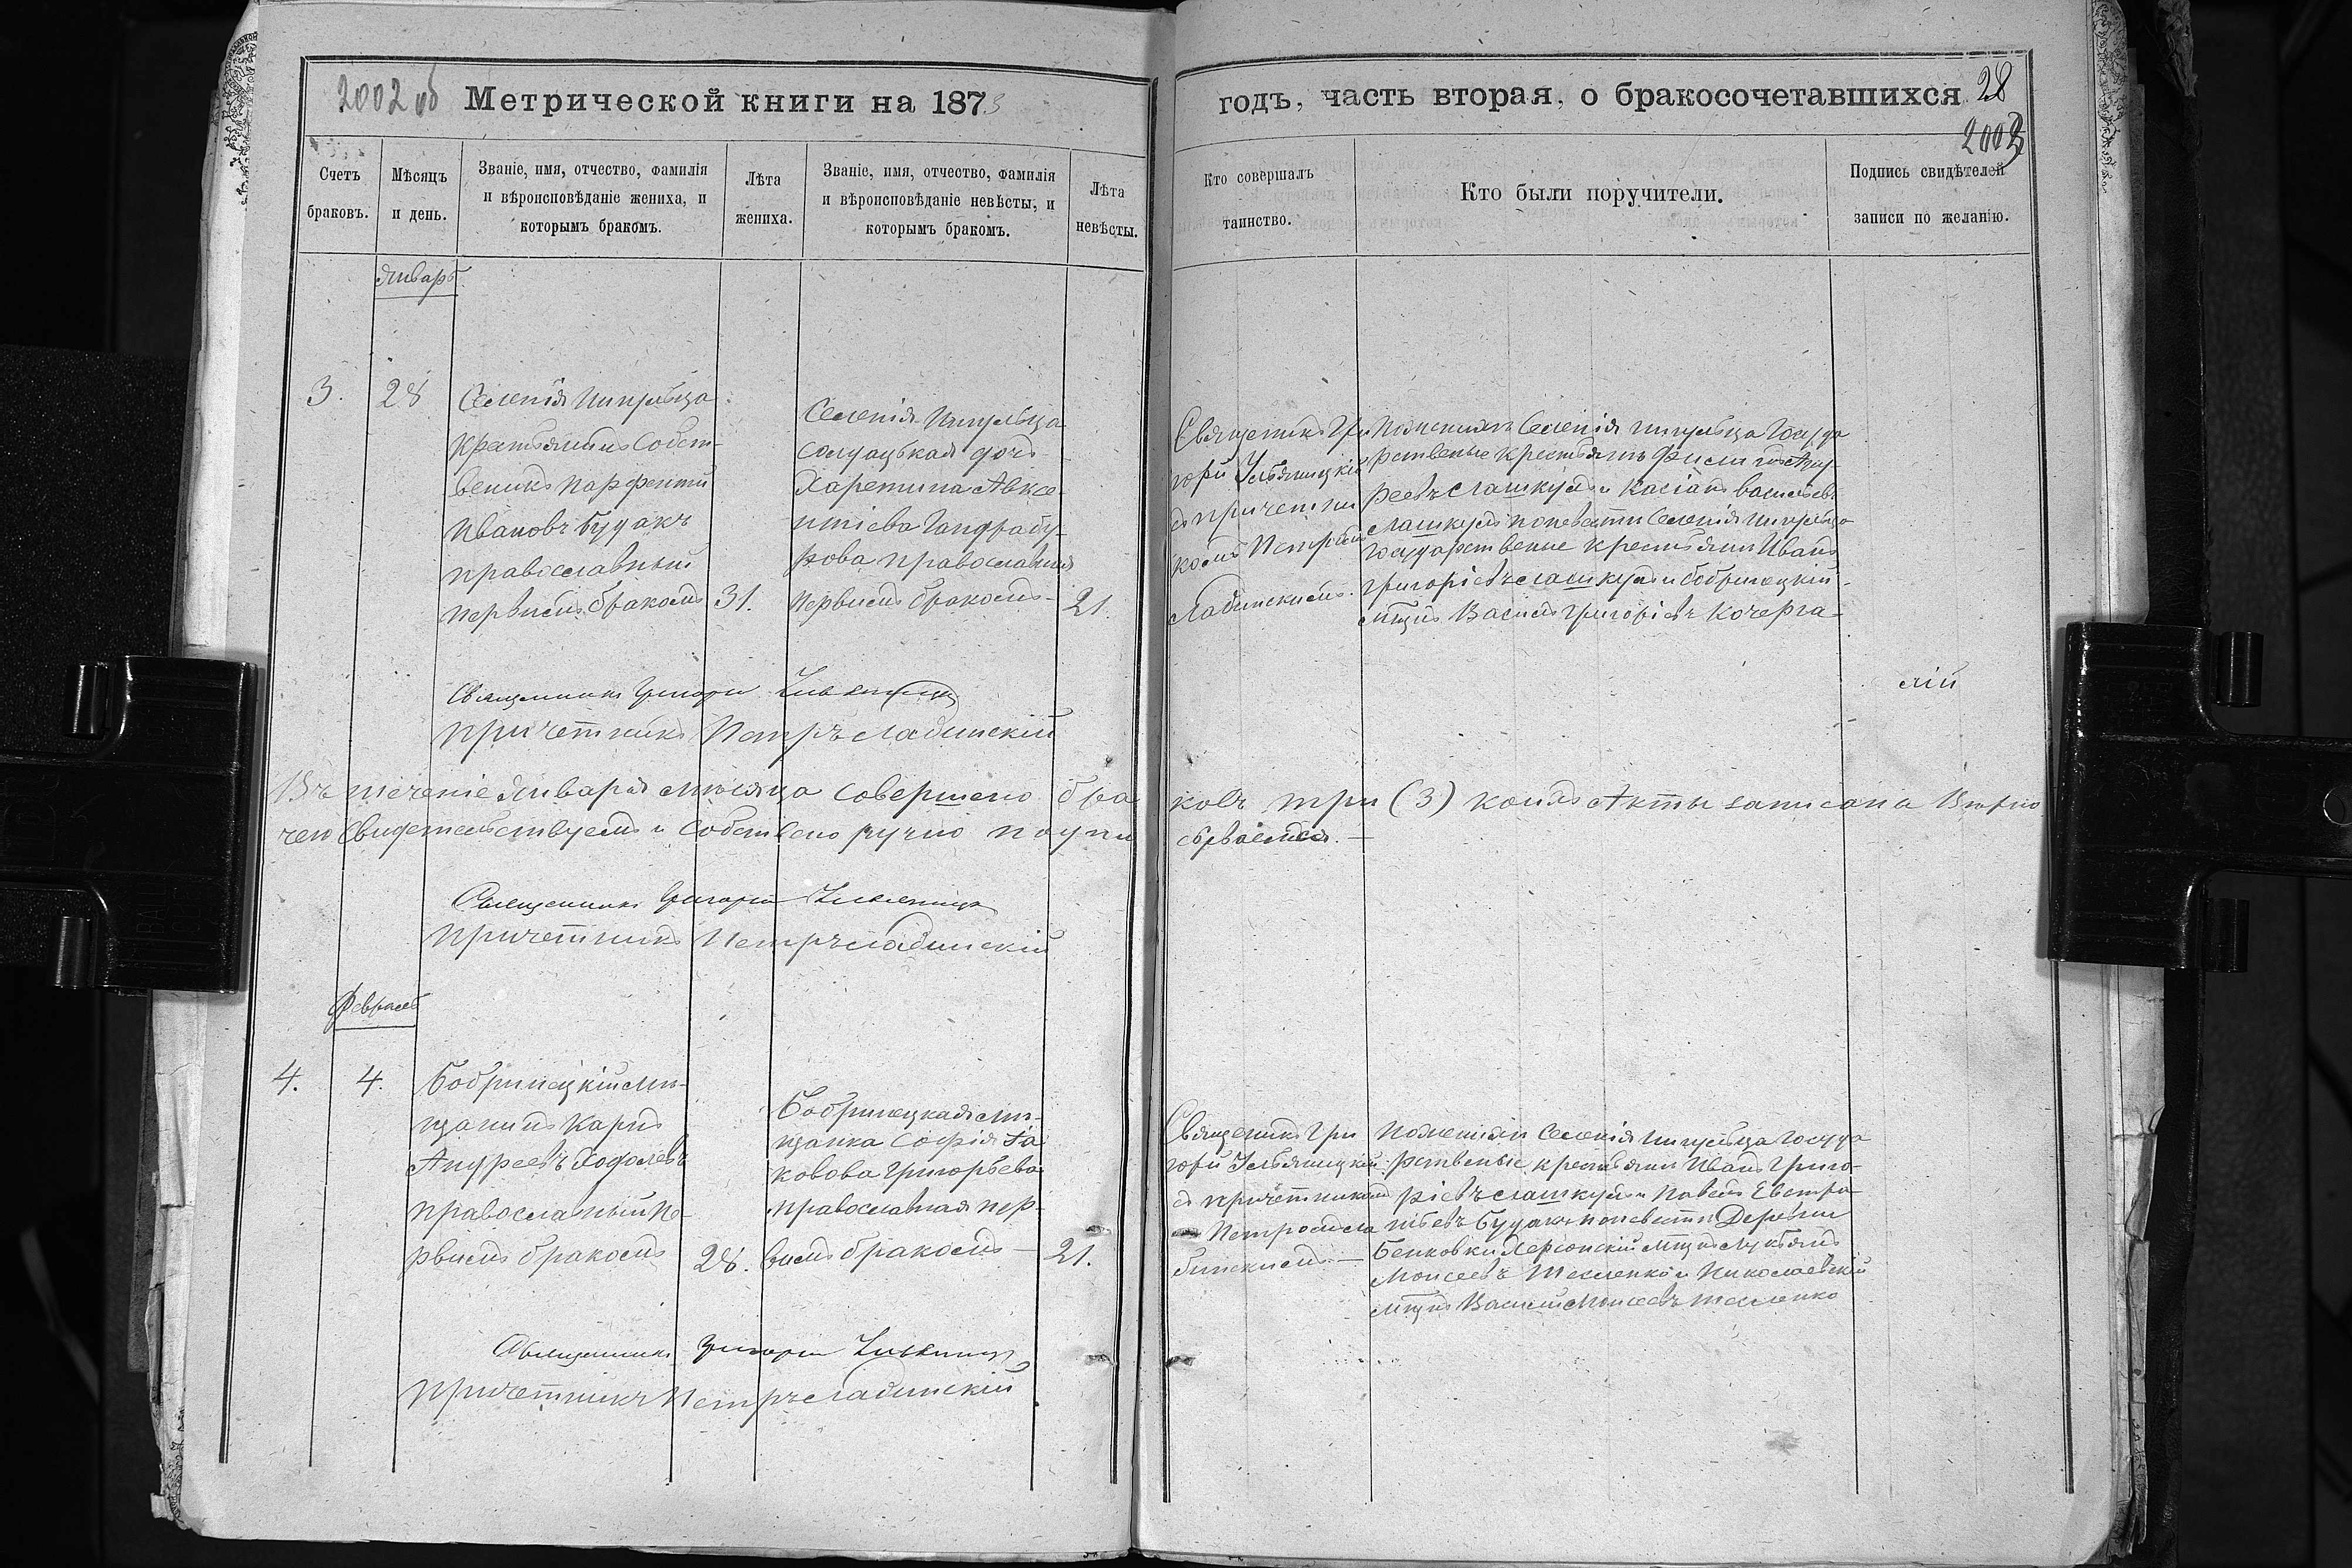 2002 об Метрической книги на 1873
годъ, часть вторая, о бракосочетавшихся 28
2003
Счетъ
браковъ.
Мѣсяцъ
и день.
Званіе, имя, отчество, фамилія
и вѣроисповѣданіе жениха, и
которымъ бракомъ.
Лѣта
жениха.
Званіе, имя, отчество, фамилія
и вѣроисповѣданіе невѣсты, и
которымъ бракомъ.
Лѣта
невѣсты.
Кто совершалъ
таинство.
Кто были поручители.
Подпись свидѣтелей
записи по желанію.
Январь
3.
28
Селенія Ингульца
Крестьянинъ Собст-
веникъ Парфентій
Ивановъ Будакъ
православный
первымъ бракомъ
31.
Селенія Ингульца
дочь
Харетина Авксе-
нтіева
православная
первымъ бракомъ
21.
Священикъ Гри
горій Ульяницкій
съ причетни
комъ Петромъ
Лабинскимъ.
Поженихѣ Селенія Ингульца Госуда
рственые крестьянъ Анд-
реевъ Лашкулъ и Касіанъ Васильевъ
Лашкулъ поневѣсти Селенія Ингульца
Государственые крестьяни Иванъ
Григоріевъ Лашкулъ и Бобринецкій
Мѣщнъ Василь Григоріевъ Кочерга
Священникъ Григорій Ульяницкій
Причетникъ Петръ Лабинскій
Въ теченіе Января мѣсяца совершено бра
ковъ три (3) коимъ Акты записана Вѣрно
чего Свидетельствуемъ и Собствено ручно подпи
сываемся.
Священникъ Григорій Ульяницкій
Причетникъ Петръ Лабинскій
Февраль
4.
4.
Бобринецкій Мѣ-
щанинъ Карпъ
Андреевъ
православный пе-
рвымъ бракомъ
28.
Бобринецкая Мѣ-
щанка Софія Іа
ковова Григорьева
православная пер-
вымъ бракомъ
21.
Священикъ Гри
горій Ульяницкій
съ причетникомъ
Петромъ Ла
бинскимъ
Поженихи Селенія Ингульца Госуда
рственые крестьяни Иванъ Григо-
ріевъ Лашкулъ и Павелъ Евстра-
тіевъ Будакъ поневѣсти Деревни
Бенковки Херсонскій Мѣщнъ Лукьянъ
Моисеевъ Тесленко и Николаевскій
Мѣщнъ Василій Моисеевъ Тесленко
Священникъ Григорій Ульяницкій
Причетникъ Петръ Лабинскій